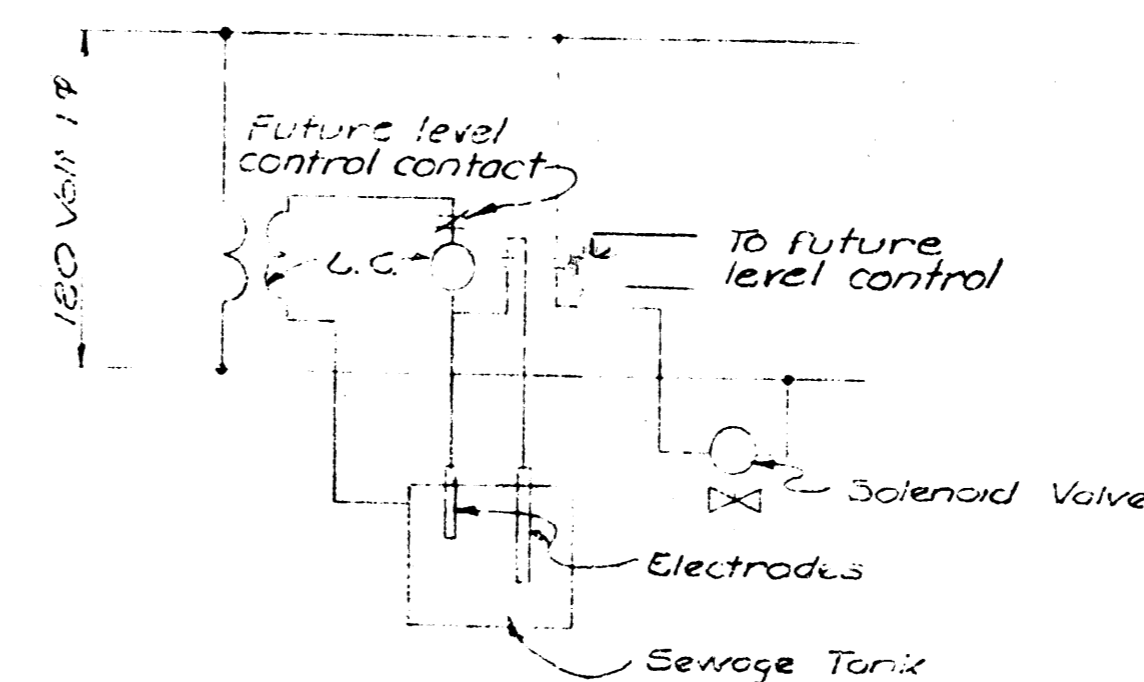 120 Volt 1φ
Future level
control contact
L.C.
To future
level control
Solenoid Valve
Electrodes
Sewage Tank